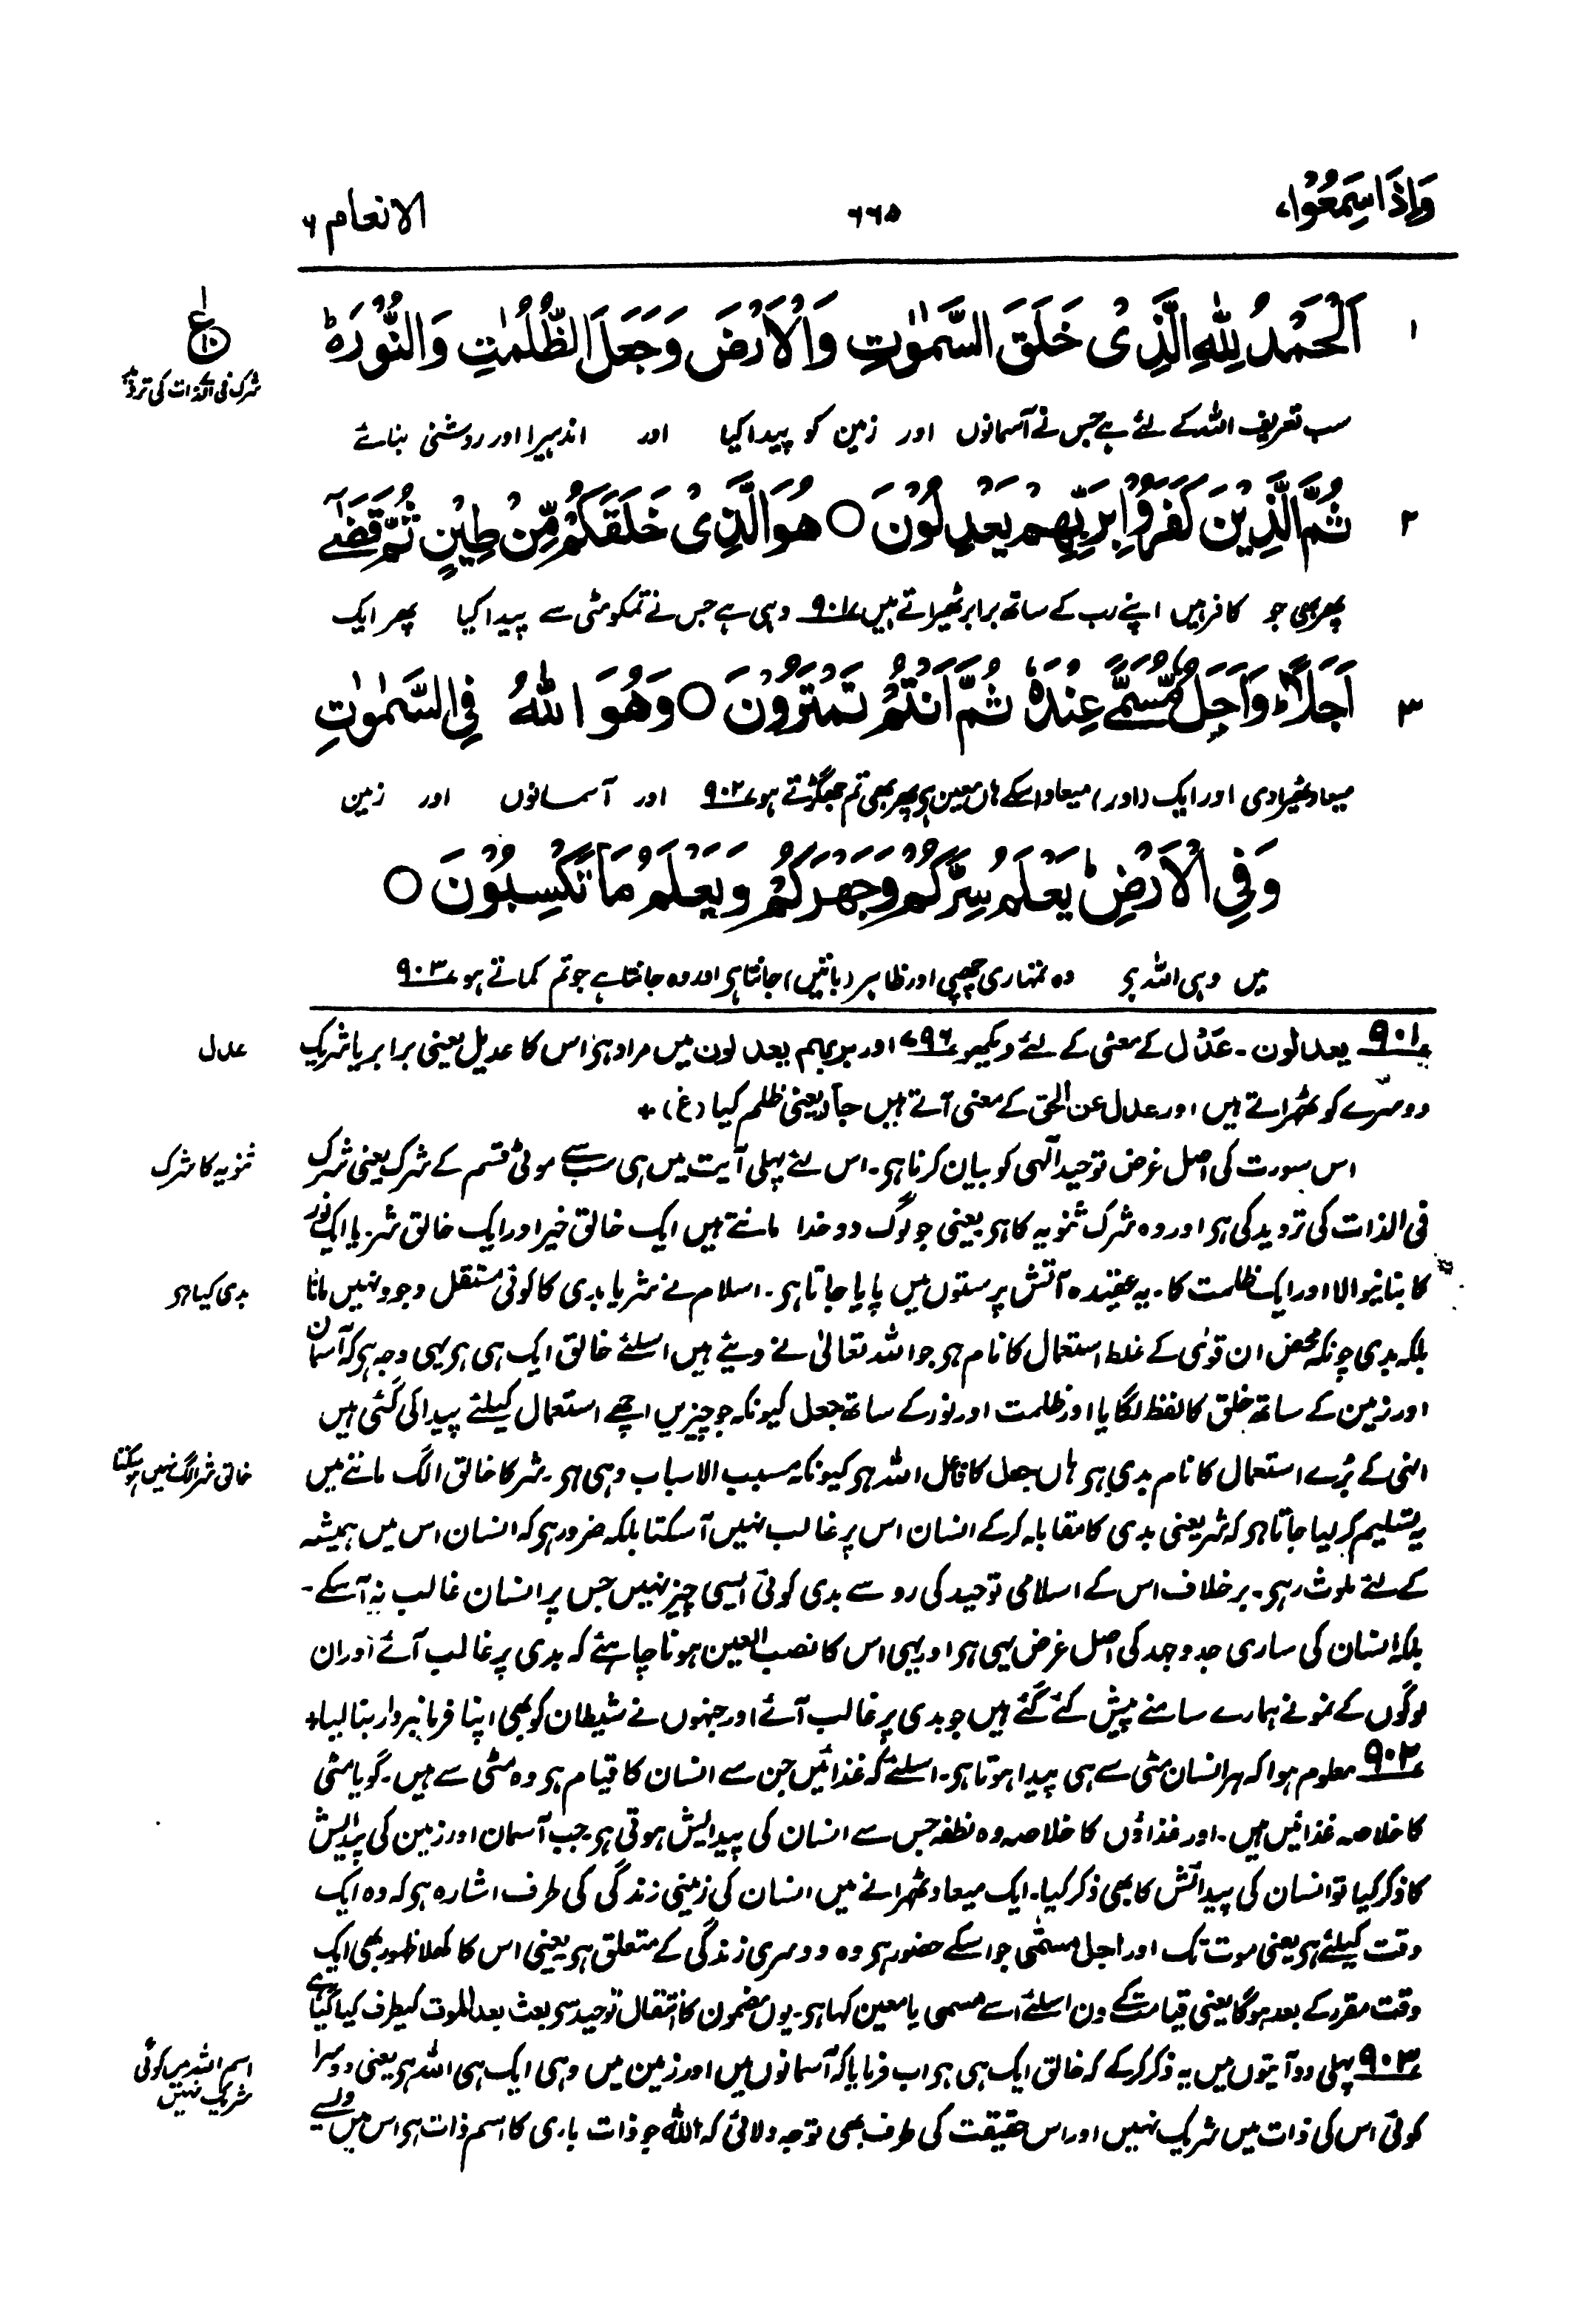 وَاِذَا سَمِعُوْا ۷
۶۶۵
الانعام ۶
۱
اَلْحَمْدُ لِلّٰهِ الَّذِىْ خَلَقَ السَّمٰوٰتِ وَالْاَرْضَ وَجَعَلَ الظُّلُمٰتِ وَالنُّوْرَ ؕ
ع ۱۰
شرک فی الذات کی تردید
سب تعریف اللہ کے لئے ہے جس نے آسمانوں اور زمین کو پیدا کیا اور اندہیرا اور روشنی بنائے
۲
ثُمَّ الَّذِيْنَ كَفَرُوْا بِرَبِّهِمْ يَعْدِلُوْنَ ○ هُوَ الَّذِىْ خَلَقَكُمْ مِّنْ طِيْنٍ ثُمَّ قَضٰۤى
پھر بھی جو کافر ہیں اپنے رب کے ساتھ برابر ٹھیراتے ہیں ۹۰۱ وہی ہے جس نے تمکو مٹی سے پیدا کیا پھر ایک
۳
اَجَلًا ؕ وَاَجَلٌ مُّسَمًّى عِنْدَهٗ ثُمَّ اَنْتُمْ تَمْتَرُوْنَ ○ وَهُوَ اللّٰهُ فِى السَّمٰوٰتِ
میعاد ٹھیرادی اور ایک (اور) میعاد اسکے ہاں معین ہی پھر بھی تم جھگڑتے ہو ۹۰۲ اور آسمانوں اور زمین
وَفِى الْاَرْضِ ؕ يَعْلَمُ سِرَّكُمْ وَجَهْرَكُمْ وَيَعْلَمُ مَا تَكْسِبُوْنَ ○
میں وہی اللہ ہی وہ تمہاری چھپی اور ظاہر (باتیں) جانتا ہی اور وہ جانتا ہے جو تم کماتے ہو ۹۰۳
۹۰۱ یعدلون۔ عَدَل کے معنی کے لئے دیکھو ۷۹۶ اور بربہم یعدلون میں مراد ہی اس کا عدیل یعنی برابر یا شریک
عدل
دوسرے کو ٹھہراتے ہیں اور عدل عن الحق کے معنی آتے ہیں جاَر یعنی ظلم کیا (غ) +
اس سورت کی اصل غرض توحید الٰہی کو بیان کرنا ہی۔ اس لئے پہلی آیت میں ہی سب سے موٹی قسم کے شرک یعنی شرک
ثنویہ کا شرک
فی الذات کی تردید کی ہی اور وہ شرک ثنویہ کا ہی یعنی جو لوگ دو خدا مانتے ہیں ایک خالق خیر اور ایک خالق شر۔ یا ایک نور
کا بنانیوالا اور ایک ظلمت کا۔ یہ عقیدہ آتش پرستوں میں پایا جاتا ہی۔ اسلام نے شر یا بدی کا کوئی مستقل وجود نہیں مانا
بدی کیا ہی
بلکہ بدی چونکہ محض ان قویٰ کے غلط استعمال کا نام ہی جو اللہ تعالیٰ نے دیئے ہیں اسلئے خالق ایک ہی ہی یہی وجہ ہی کہ آسمان
اور زمین کے ساتھ خلق کا لفظ لگایا اور ظلمت اور نور کے ساتھ جعل کیونکہ جو چیزیں اچھے استعمال کیلئے پیدا کی گئی ہیں
انہی کے بُرے استعمال کا نام بدی ہی ہاں جعل کا فاعل اللہ ہی کیونکہ مسبب الاسباب وہی ہی۔ شر کا خالق الگ ماننے میں
خالق شر الگ نہیں ہو سکتا
یہ تسلیم کر لیا جاتا ہی کہ شر یعنی بدی کا مقابلہ کر کے انسان اس پر غالب نہیں آ سکتا بلکہ ضرور ہی کہ انسان اس میں ہمیشہ
کے لئے ملوث رہی۔ برخلاف اس کے اسلامی توحید کی رو سے بدی کوئی ایسی چیز نہیں جس پر انسان غالب نہ آ سکے۔
بلکہ انسان کی ساری جدوجہد کی اصل غرض یہی ہی اور یہی اس کا نصب العین ہونا چاہئے کہ بدی پر غالب آئے اور ان
لوگوں کے نمونے ہمارے سامنے پیش کئے گئے ہیں جو بدی پر غالب آئے اور جنہوں نے شیطان کو بھی اپنا فرمانبردار بنا لیا +
۹۰۲ معلوم ہوا کہ ہر انسان مٹی سے ہی پیدا ہوتا ہی۔ اسلئے کہ غذائیں جن سے انسان کا قیام ہی وہ مٹی سے ہیں۔ گویا مٹی
کا خلاصہ غذائیں ہیں۔ اور غذاؤں کا خلاصہ وہ نطفہ جس سے انسان کی پیدایش ہوتی ہی۔ جب آسمان اور زمین کی پیدایش
کا ذکر کیا تو انسان کی پیدائش کا بھی ذکر کیا۔ ایک میعاد ٹھہرانے میں انسان کی زمینی زندگی کی طرف اشارہ ہی کہ وہ ایک
وقت کیلئے ہی یعنی موت تک اور اجل مسمّٰی جو اسکے حضور ہی وہ دوسری زندگی کے متعلق ہی یعنی اس کا کھلا ظہور بھی ایک
وقت مقرر کے بعد ہو گا یعنی قیامت کے دن اسلئے اسے مسمی یا معین کہا ہی۔ یوں مضمون کا انتقال توحید سی بعث بعد الموت کیطرف کیا گیا ہے
۹۰۳ پہلی دو آیتوں میں یہ ذکر کر کے کہ خالق ایک ہی ہی اب فرمایا کہ آسمانوں میں اور زمین میں وہی ایک ہی اللہ ہی یعنی دوسرا
اسم اللہ میں کوئی
شریک نہیں
کوئی اس کی ذات میں شریک نہیں اور اس حقیقت کی طرف بھی توجہ دلائی کہ اللہ جو ذات باری کا اسم ذات ہی اس میں